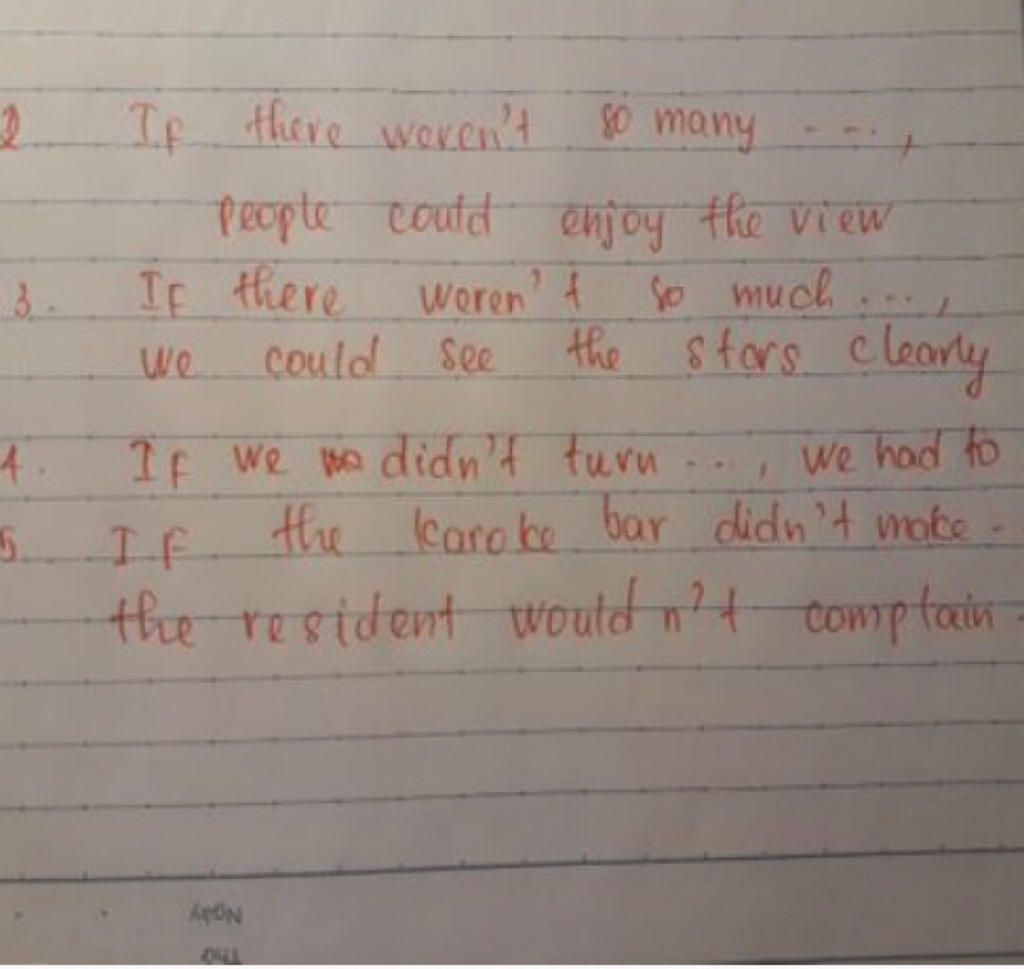 2 If there weren't so many - - -. ,
people could enjoy the view
3. If there weren't so much ... ,
we could see the stars clearly
4. If we didn't turn ... , we had to
5 If the karoke bar didn't make -
the resident wouldn't complain .
Ngày
Thứ